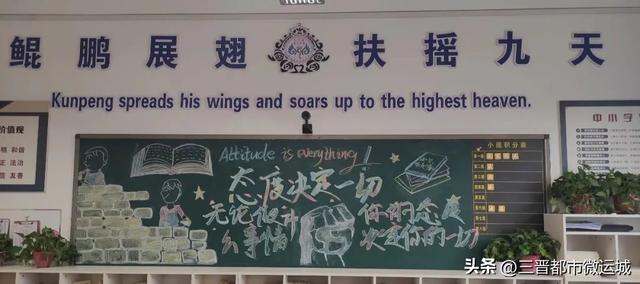 鲲鹏展翅 扶摇九天
Kunpeng spreads his wings and soars up to the highest heaven.
价值观
和谐
正 法治
信 友善
中小学
小组积分表
Attitude is everything!
态度决定一切
无论做什
么事情
你的态度
决定你的一切
头条 @三晋都市微运城